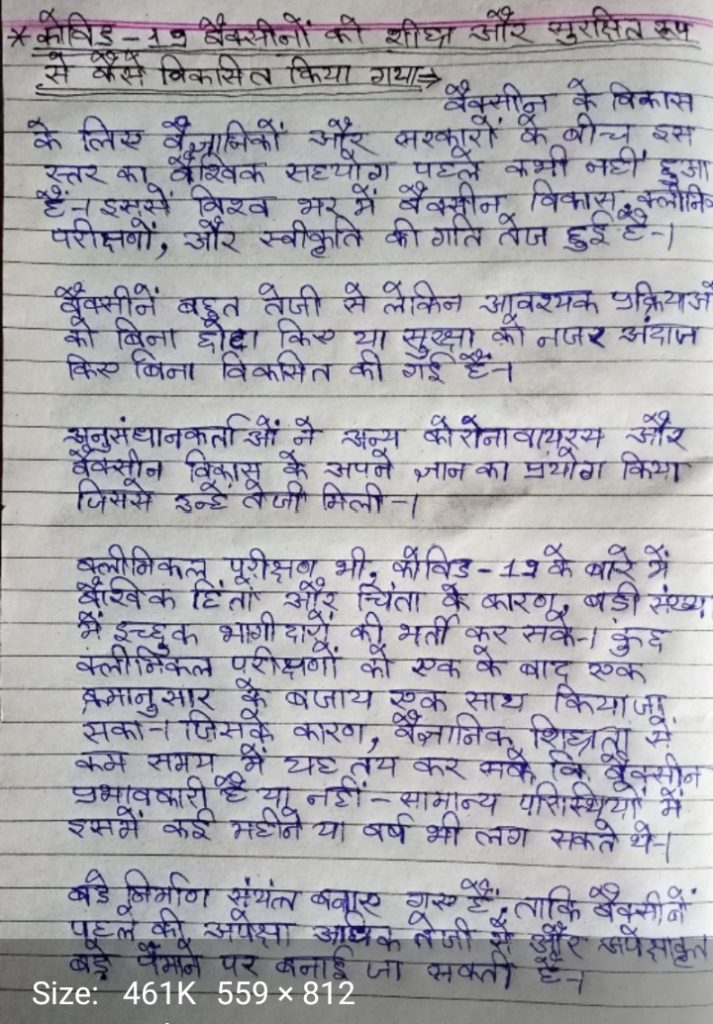 * कोविड-19 वैक्सीनों को शीघ्र और सुरक्षित रूप
से कैसे विकसित किया गया→
वैक्सीन के विकास
के लिए वैज्ञानिकों और सरकारों के बीच इस
स्तर का वैश्विक सहयोग पहले कभी नहीं हुआ
है-। इससे विश्व भर में वैक्सीन विकास, क्लीनि
परीक्षणों, और स्वीकृति की गति तेज हुई है-।
वैक्सीनें बहुत तेजी से लेकिन आवश्यक प्रक्रियाओं
को बिना छोटा किए या सुरक्षा को नजर अंदाज
किए बिना विकसित की गई हैं-।
अनुसंधानकर्ताओं ने अन्य कोरोनावायरस और
वैक्सीन विकास के अपने ज्ञान का प्रयोग किया
जिससे उन्हें तेजी मिली-।
क्लीनिकल परीक्षण भी, कोविड-19 के बारे में
वैश्विक हितों और चिंता के कारण, बड़ी संख्य
में इच्छुक भागीदारों की भर्ती कर सके-। कुछ
क्लीनिकल परीक्षणों को एक के बाद एक
क्रमानुसार के बजाय एक साथ किया जा
सका-। जिसके कारण, वैज्ञानिक शिघ्रता से
कम समय में यह तय कर सके कि वैक्सीन
प्रभावकारी है या नहीं - सामान्य परिस्थियों में
इसमें कई महीने या वर्ष भी लग सकते थे-।
बडे निर्माण संयंत बनाए गए हैं, ताकि वैक्सीनें
पहले की अपेक्षा अधिक तेजी से और अपेक्षाकृत
बड़े पैमाने पर बनाई जा सकती है-।
Size: 461K 559×812